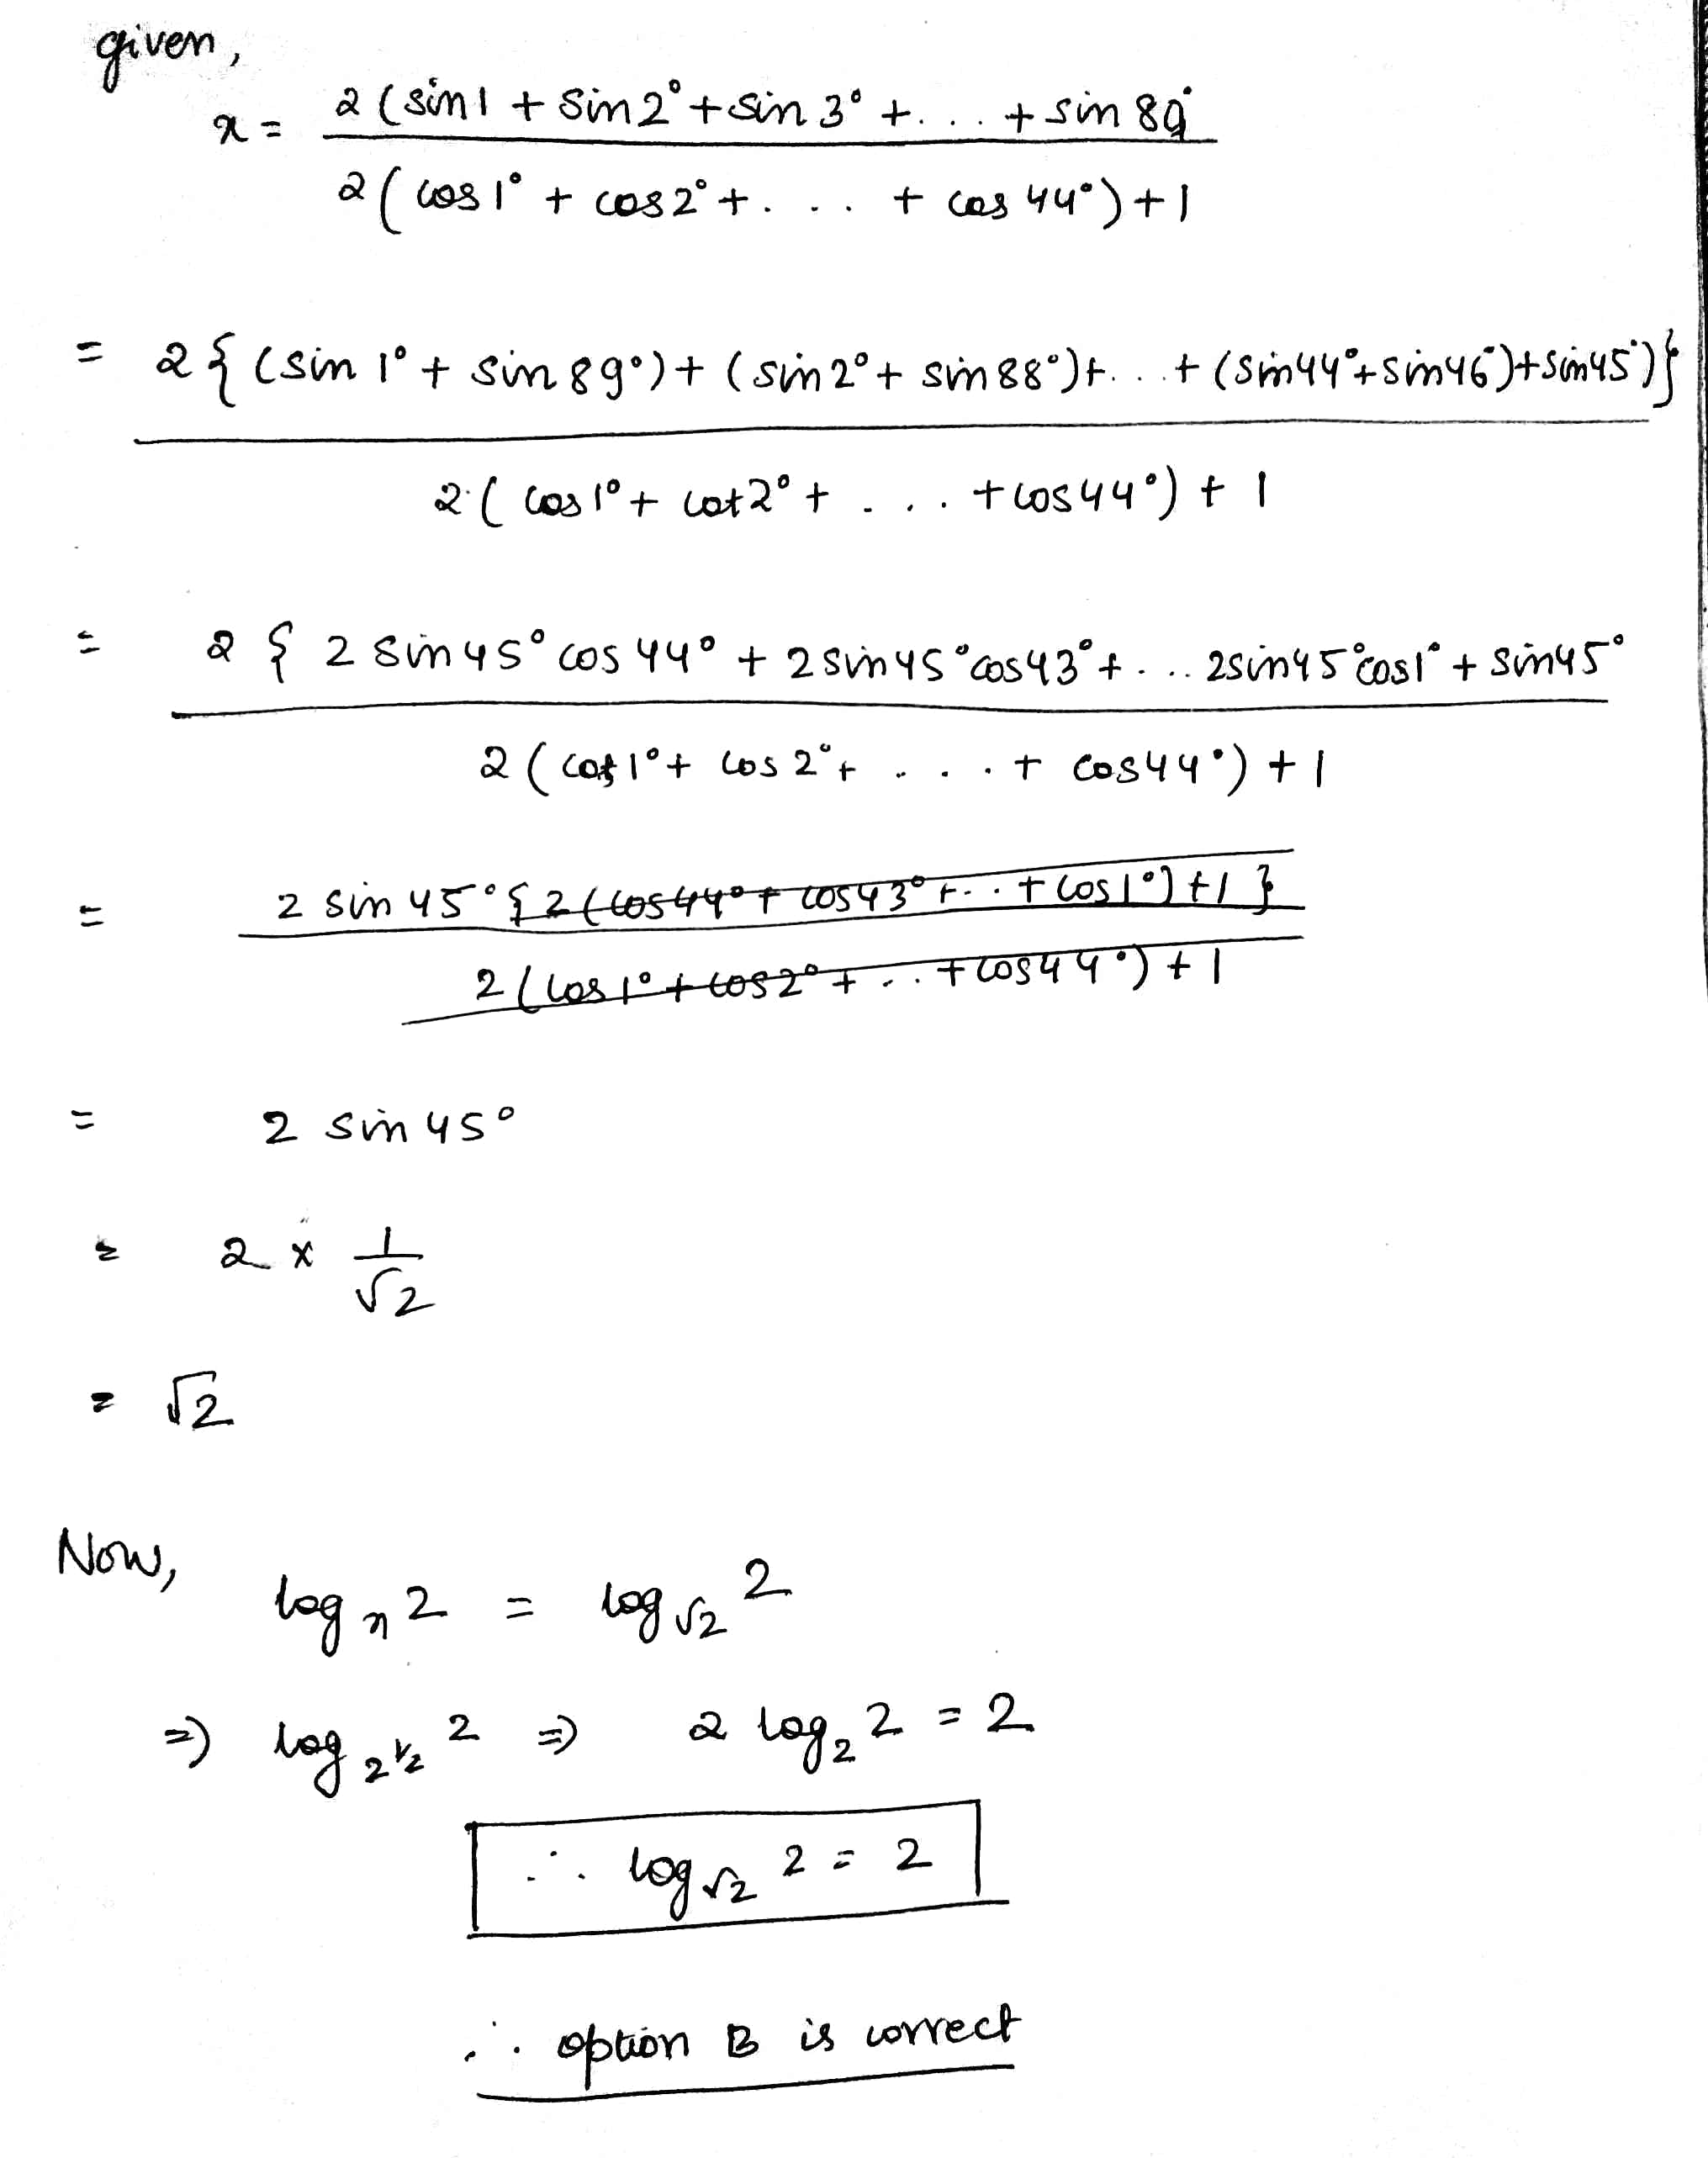 given,
x = 2 (sin1 + sin2° + sin 3° + . . . + sin 89°
2 ( cos 1° + cos 2° + . . . + cos 44° ) + 1
= 2 { (sin 1° + sin 89°) + (sin2° + sin88°) + . . . + (sin44° + sin46°) + sin45°) }
2 ( cos 1° + cot2° + . . . + cos44° ) + 1
= 2 { 2 sin45° cos 44° + 2 sin45° cos43° + . . . 2sin45° cos1° + sin45°
2 ( cos 1° + cos 2° + . . . . + cos44° ) + 1
= 2 sin 45° { 2 ( cos44° + cos43° + . . + cos1° ) + 1 }
2 ( cos 1° + cos2° + . . . + cos44° ) + 1
= 2 sin 45°
= 2 x 1
√2
= √2
Now,
log x 2 = log √2 2
=) log 2^1/2 2 =) 2 log₂ 2 = 2
∴ log √2 2 = 2
∴ option B is correct